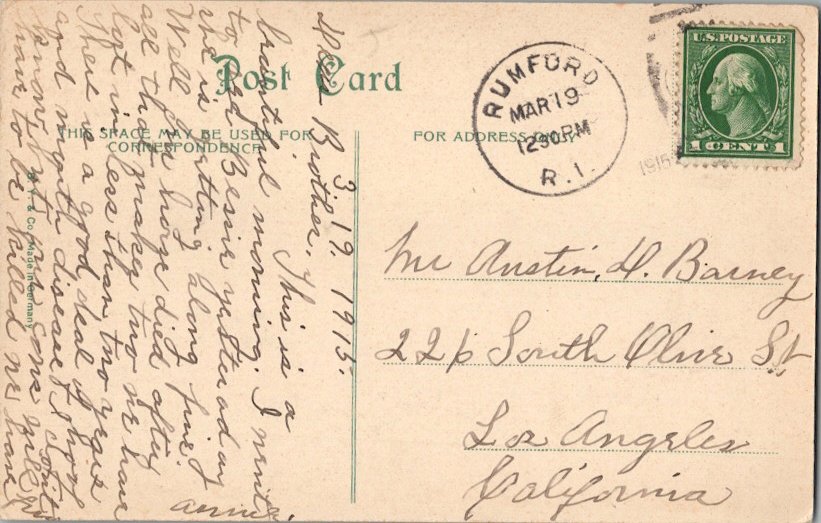 Post Card
THIS SPACE MAY BE USED FOR
CORRESPONDENCE
FOR ADDRESS ONLY
RUMFORD
MAR 19
1230 PM
R.I.
U.S. POSTAGE
1 CENT 1
1915
Mr Austin, D. Barney
226 South Olive St
Los Angeles
California
3. 19. 1915.
Dear Brother.
This is a
beautiful morning. I
to Bessie yesterday
she is getting along fine.
Well horse died after
all that makes two we have
lost in less than two years
There is a good deal of
and mouth disease
know but cows will
have to be killed we have
Annie
& Co. Made in Germany